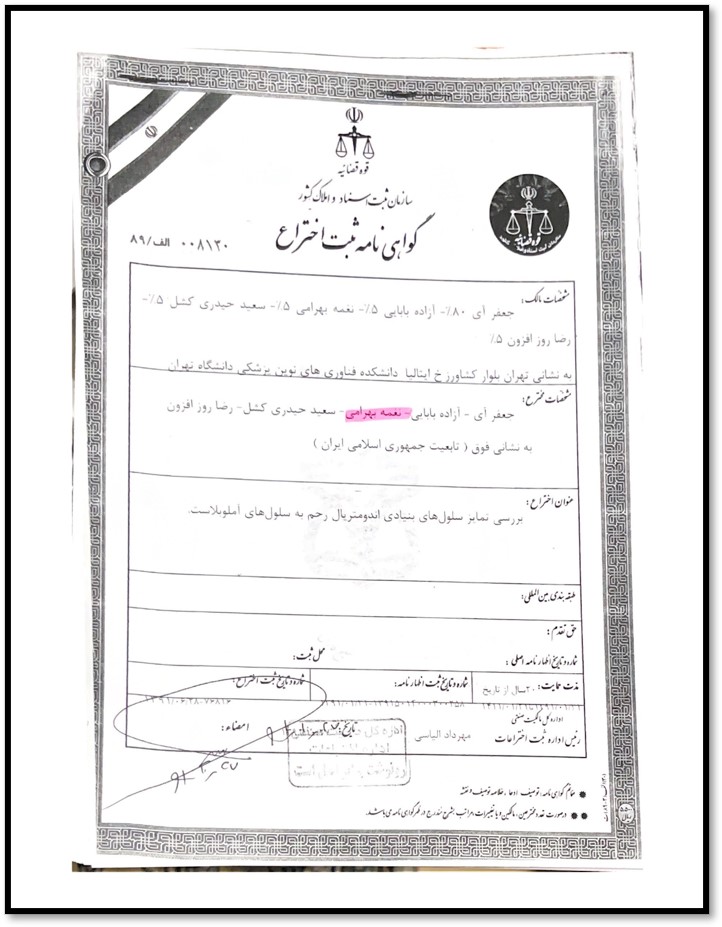 قوه قضائیه
سازمان ثبت اسناد و املاک کشور
گواهی نامه ثبت اختراع
۰۰۸۱۳۰ الف/۸۹
قوه قضائیه
مشخصات مالک:
جعفر آی ۸۰٪- آزاده بابایی ۵٪- نغمه بهرامی ۵٪- سعید حیدری کشل ۵٪-
رضا روز افزون ۵٪
به نشانی تهران بلوار کشاورز خ ایتالیا دانشکده فناوری های نوین پزشکی دانشگاه تهران
مشخصات مخترع:
جعفر آی - آزاده بابایی- نغمه بهرامی- سعید حیدری کشل- رضا روز افزون
به نشانی فوق ( تابعیت جمهوری اسلامی ایران )
عنوان اختراع:
بررسی تمایز سلول‌های بنیادی اندومتریال رحم به سلول‌های آملوبلاست.
طبقه بندی بین المللی:
حق تقدم:
شماره و تاریخ اظهار نامه اصلی: محل ثبت:
مدت حمایت: ۲۰سال از تاریخ شماره و تاریخ ثبت اظهار نامه: شماره و تاریخ ثبت اختراع:
۱۳۹۱/۰۶/۲۸-۷۶۸۱۶
اداره کل مالکیت صنعتی
رئیس اداره ثبت اختراعات مهرداد الیاسی تاریخ: امضاء:
تمام گواهی نامه، توصیف، ادعا، خلاصه توصیف و نقشه
در صورت تعدد مخترعین، مالکین و یا تغییرات، مراتب بشرح مندرج در ظهر گواهی نامه می باشد.